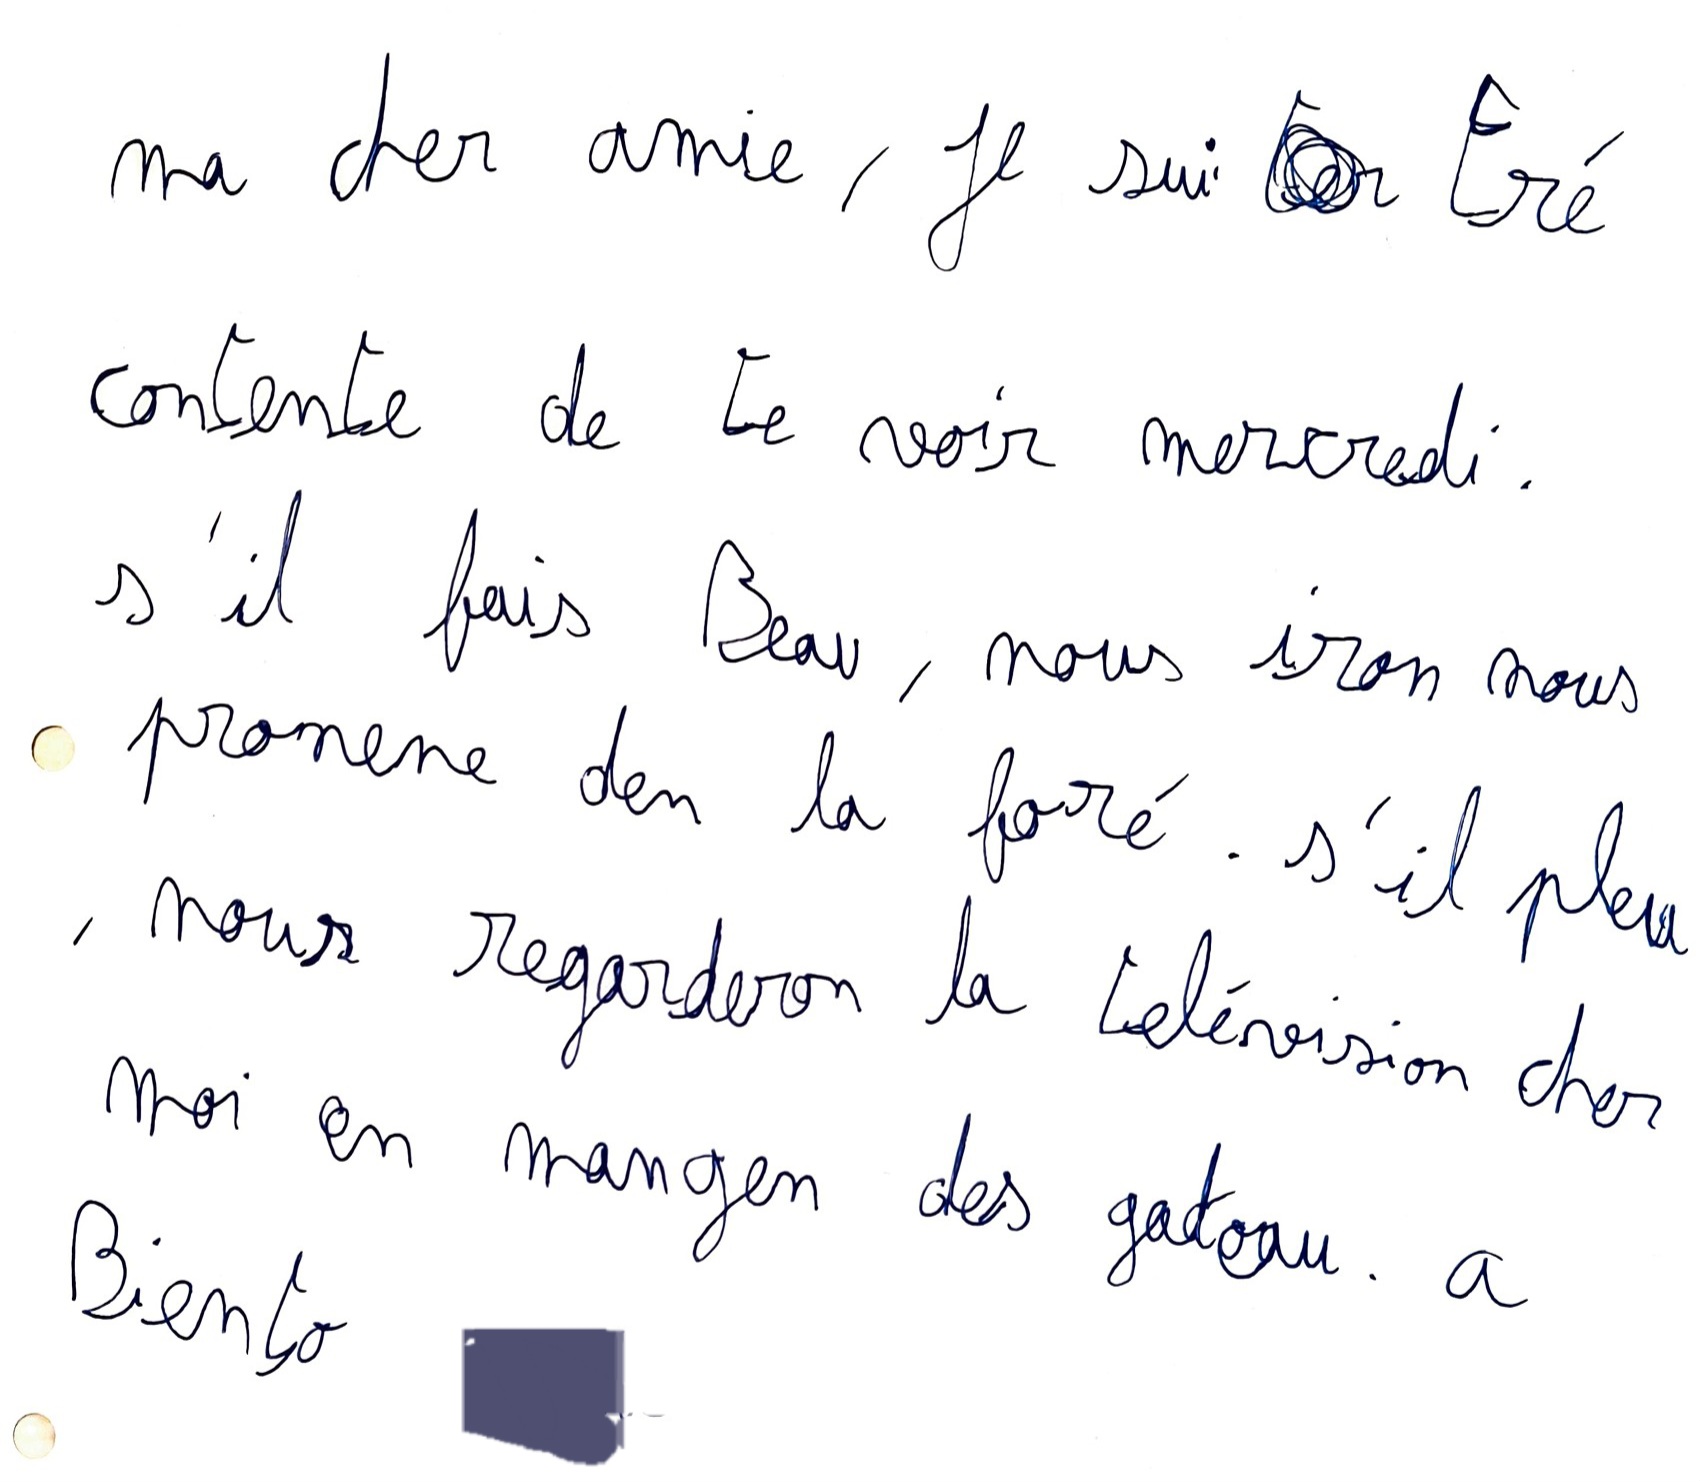 ma cher amie, Je sui tré
contente de te voir mercredi.
s'il fais Beau, nous iron nous
promene den la foré. s'il pleu
, nous regarderon la télévision cher
moi en mangen des gatoau. a
Biento